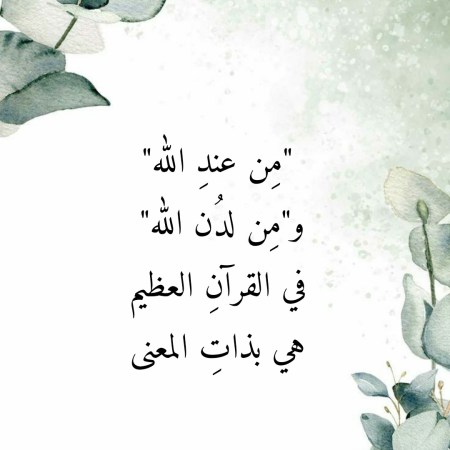 "مِن عندِ الله"
و"مِن لدُن الله"
في القرآنِ العظيم
هي بذاتِ المعنى